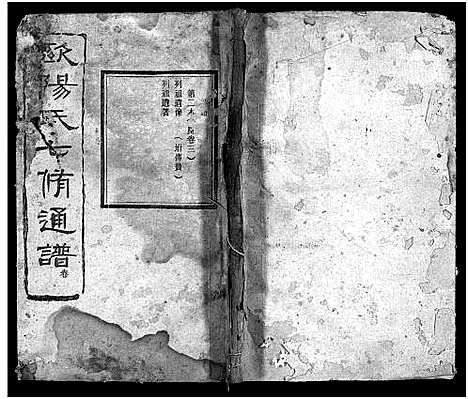 歐陽氏七脩通譜
卷
第二本(卷三)
列祖遺像(附傳贊)
列祖遺著